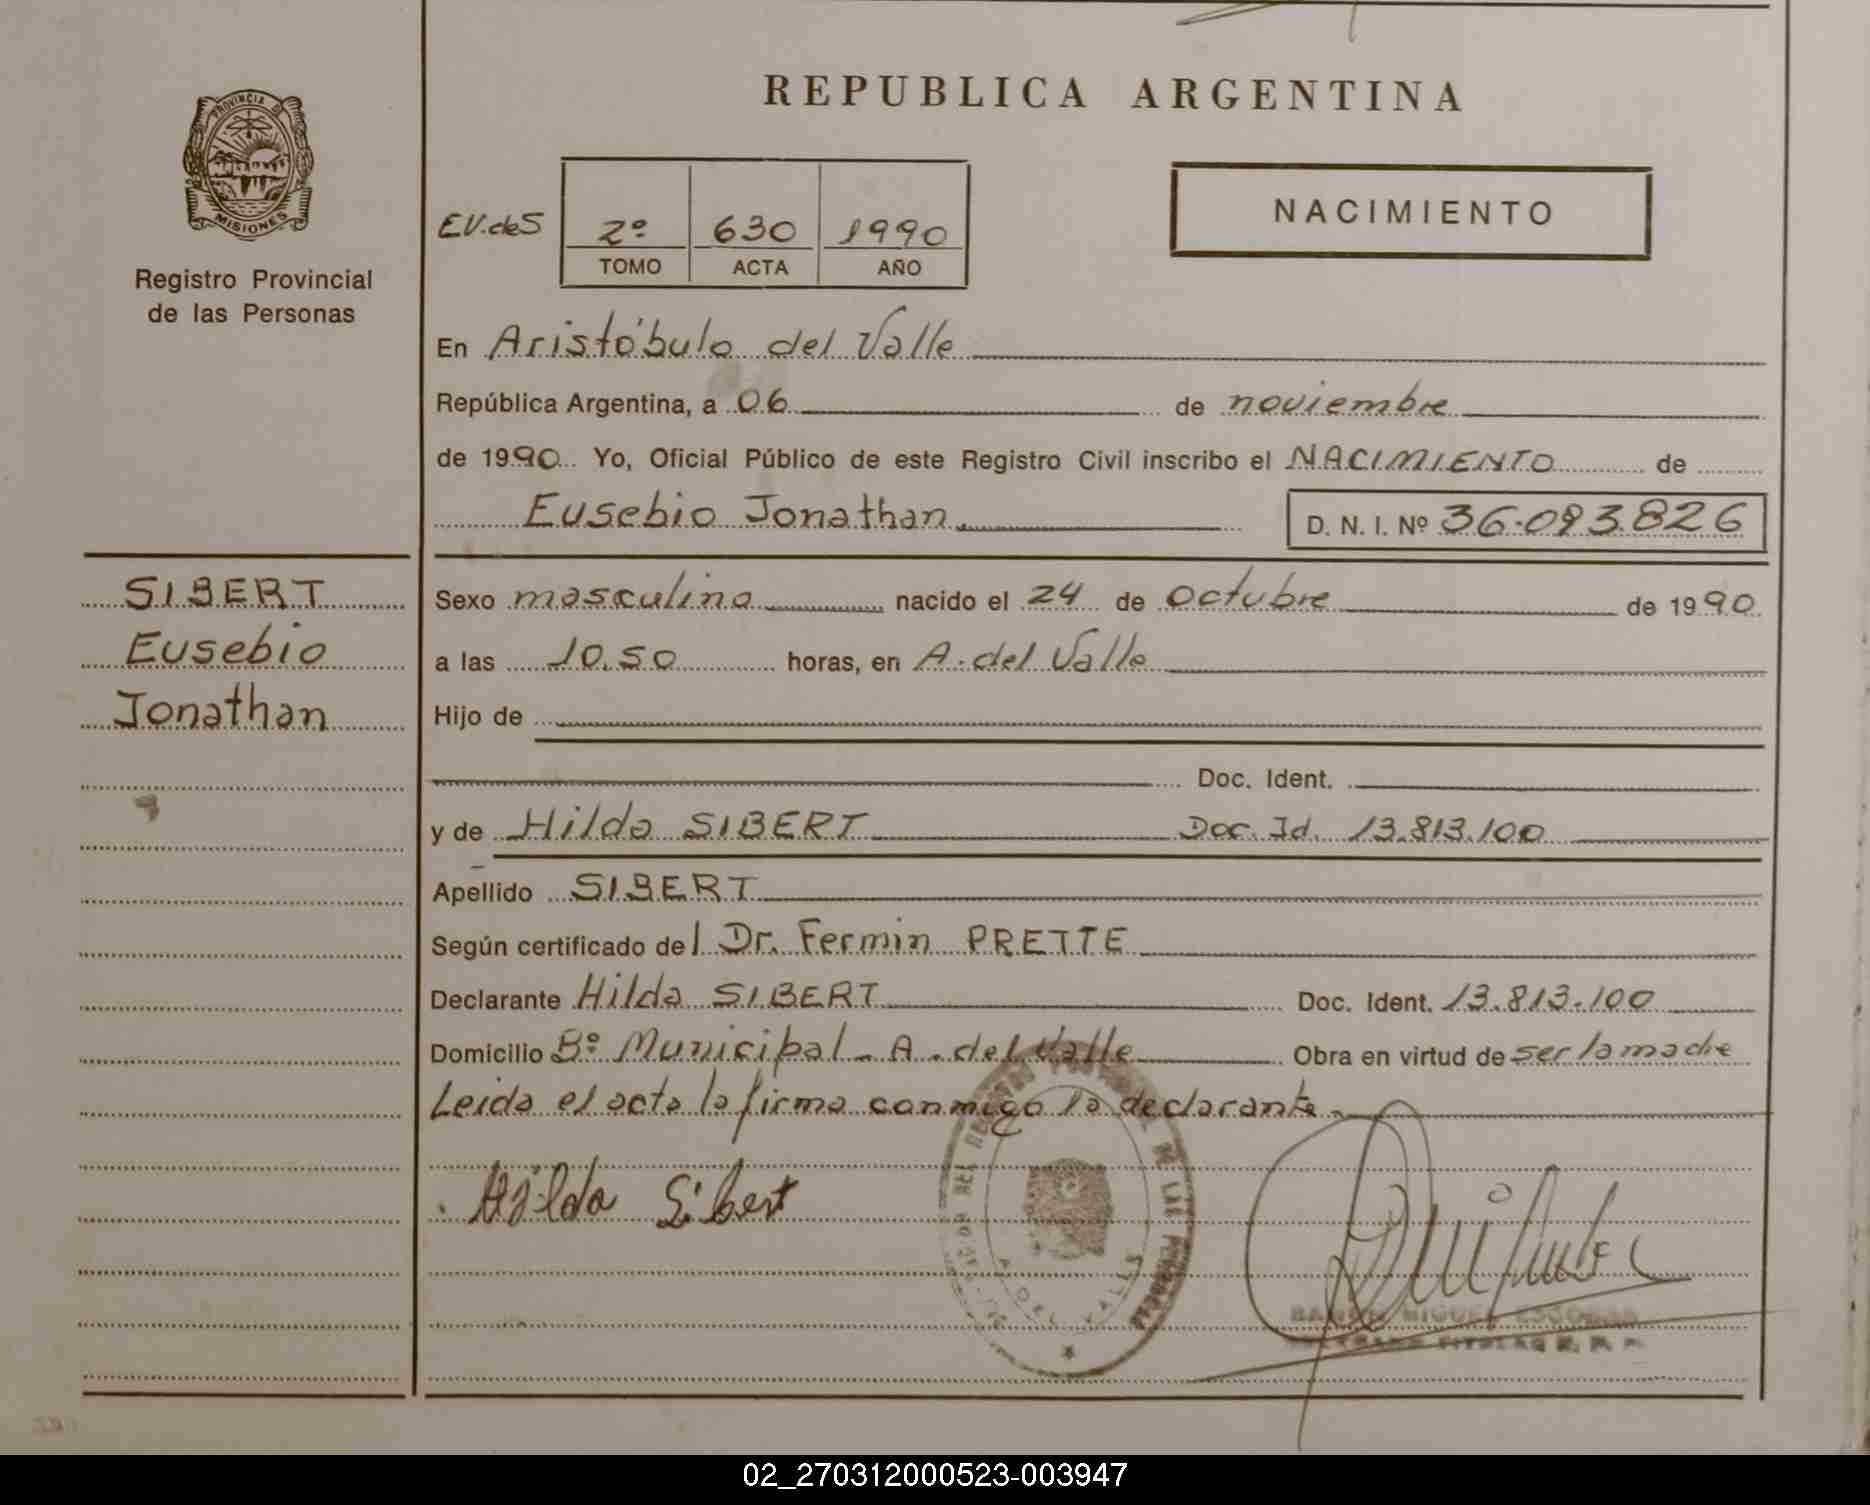 REPUBLICA ARGENTINA
PROVINCIA DE
MISIONES
Registro Provincial
de las Personas
EV.deS
2º 630 1990
TOMO ACTA AÑO
NACIMIENTO
En Aristóbulo del Valle
República Argentina, a 06 de noviembre
de 1990 Yo, Oficial Público de este Registro Civil inscribo el NACIMIENTO de
Eusebio Jonathan D. N. I. Nº 36.093.826
SIBERT
Eusebio
Jonathan
Sexo masculino nacido el 24 de octubre de 1990
a las 10.50 horas, en A. del Valle
Hijo de
Doc. Ident.
y de Hilda SIBERT Doc. Id. 13.813.100
Apellido SIBERT
Según certificado del Dr. Fermin PRETTE
Declarante Hilda SIBERT Doc. Ident. 13.813.100
Domicilio Bº Municipal - A. del Valle Obra en virtud de ser la madre
Leida el acta la firma conmigo la declarante
Hilda Sibert
A. DEL VALLE
MIGUEL ESCOBAR
02_270312000523-003947